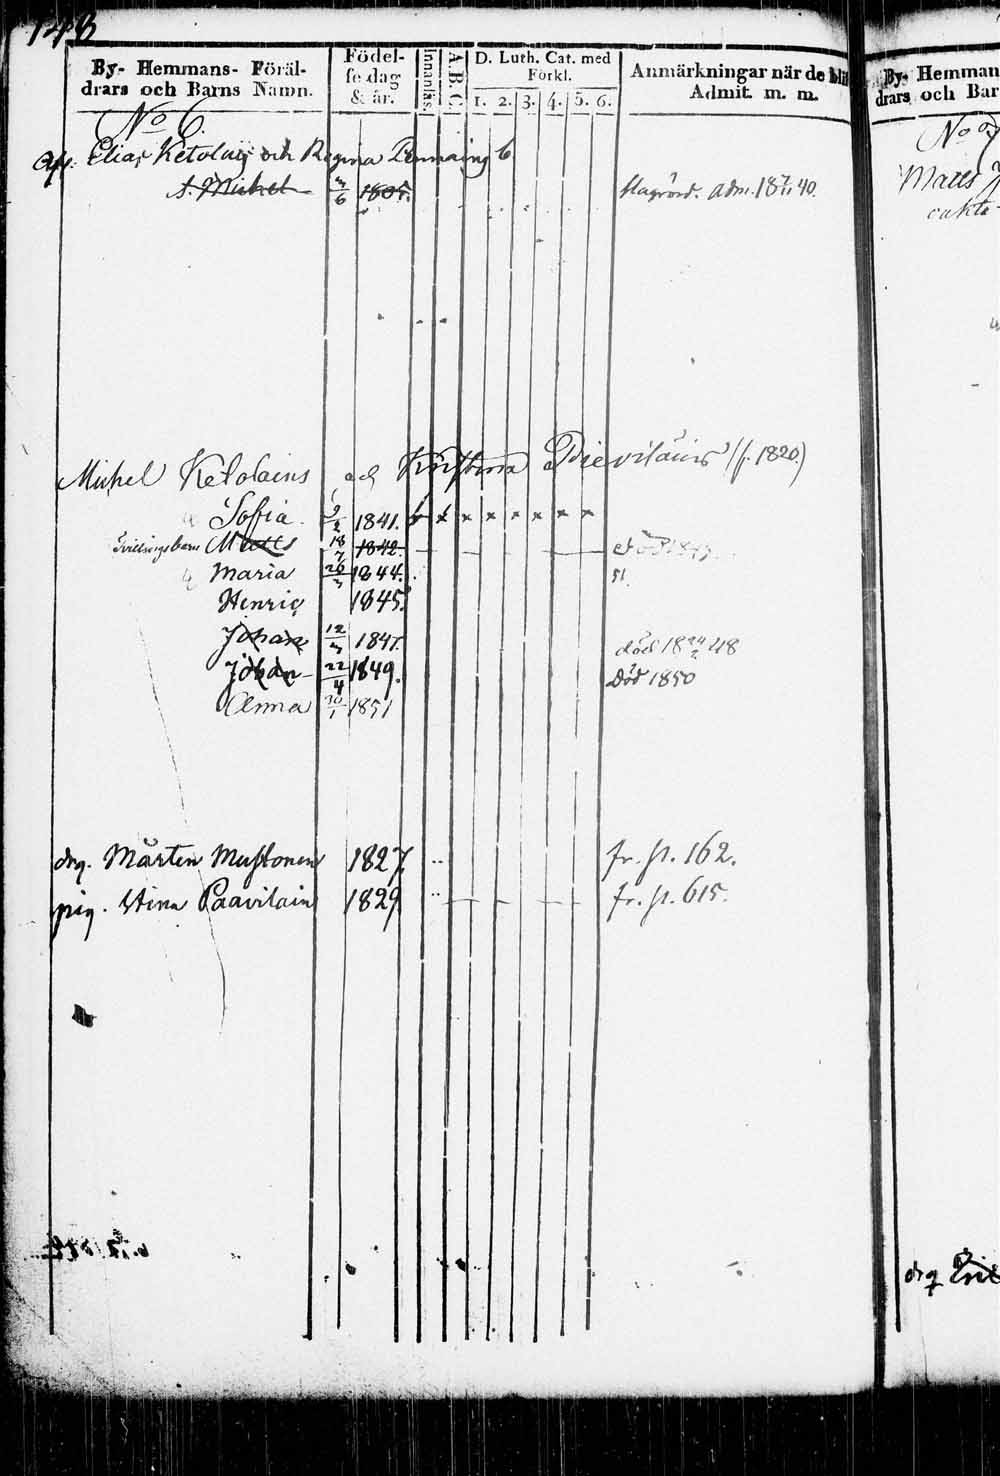 148
By- Hemmans- Föräl-
drars och Barns Namn.
Födel-
sedag
& år.
Innanläs.
A. B. C.
D. Luth. Cat. med
Förkl.
1. 2. 3. 4. 5. 6.
Anmärkningar när de bli
Admit. m. m.
No 6.
Elias Ketolains och Regina
s. Michel 3/6 1805. Adm. 18 40.
Michel Ketolains och Kristina (f. 1820.)
Sofia. 9/2 1841. x x x x x x x x
Tvillingsbarn Matts 18/7 1842.
Maria 20/3 1844. 51.
Henric 1845.
Johan 12/3 1847. död 18 24/2 48
Johan 22/4 1849. Död 1850
Anna 30/1 1851
drg. Mårten Mustonen 1827. fr. p. 162.
pig. Stina Paavilain 1829 fr. p. 615.
By- Hemman
drars och Bar
No
Matts
drg